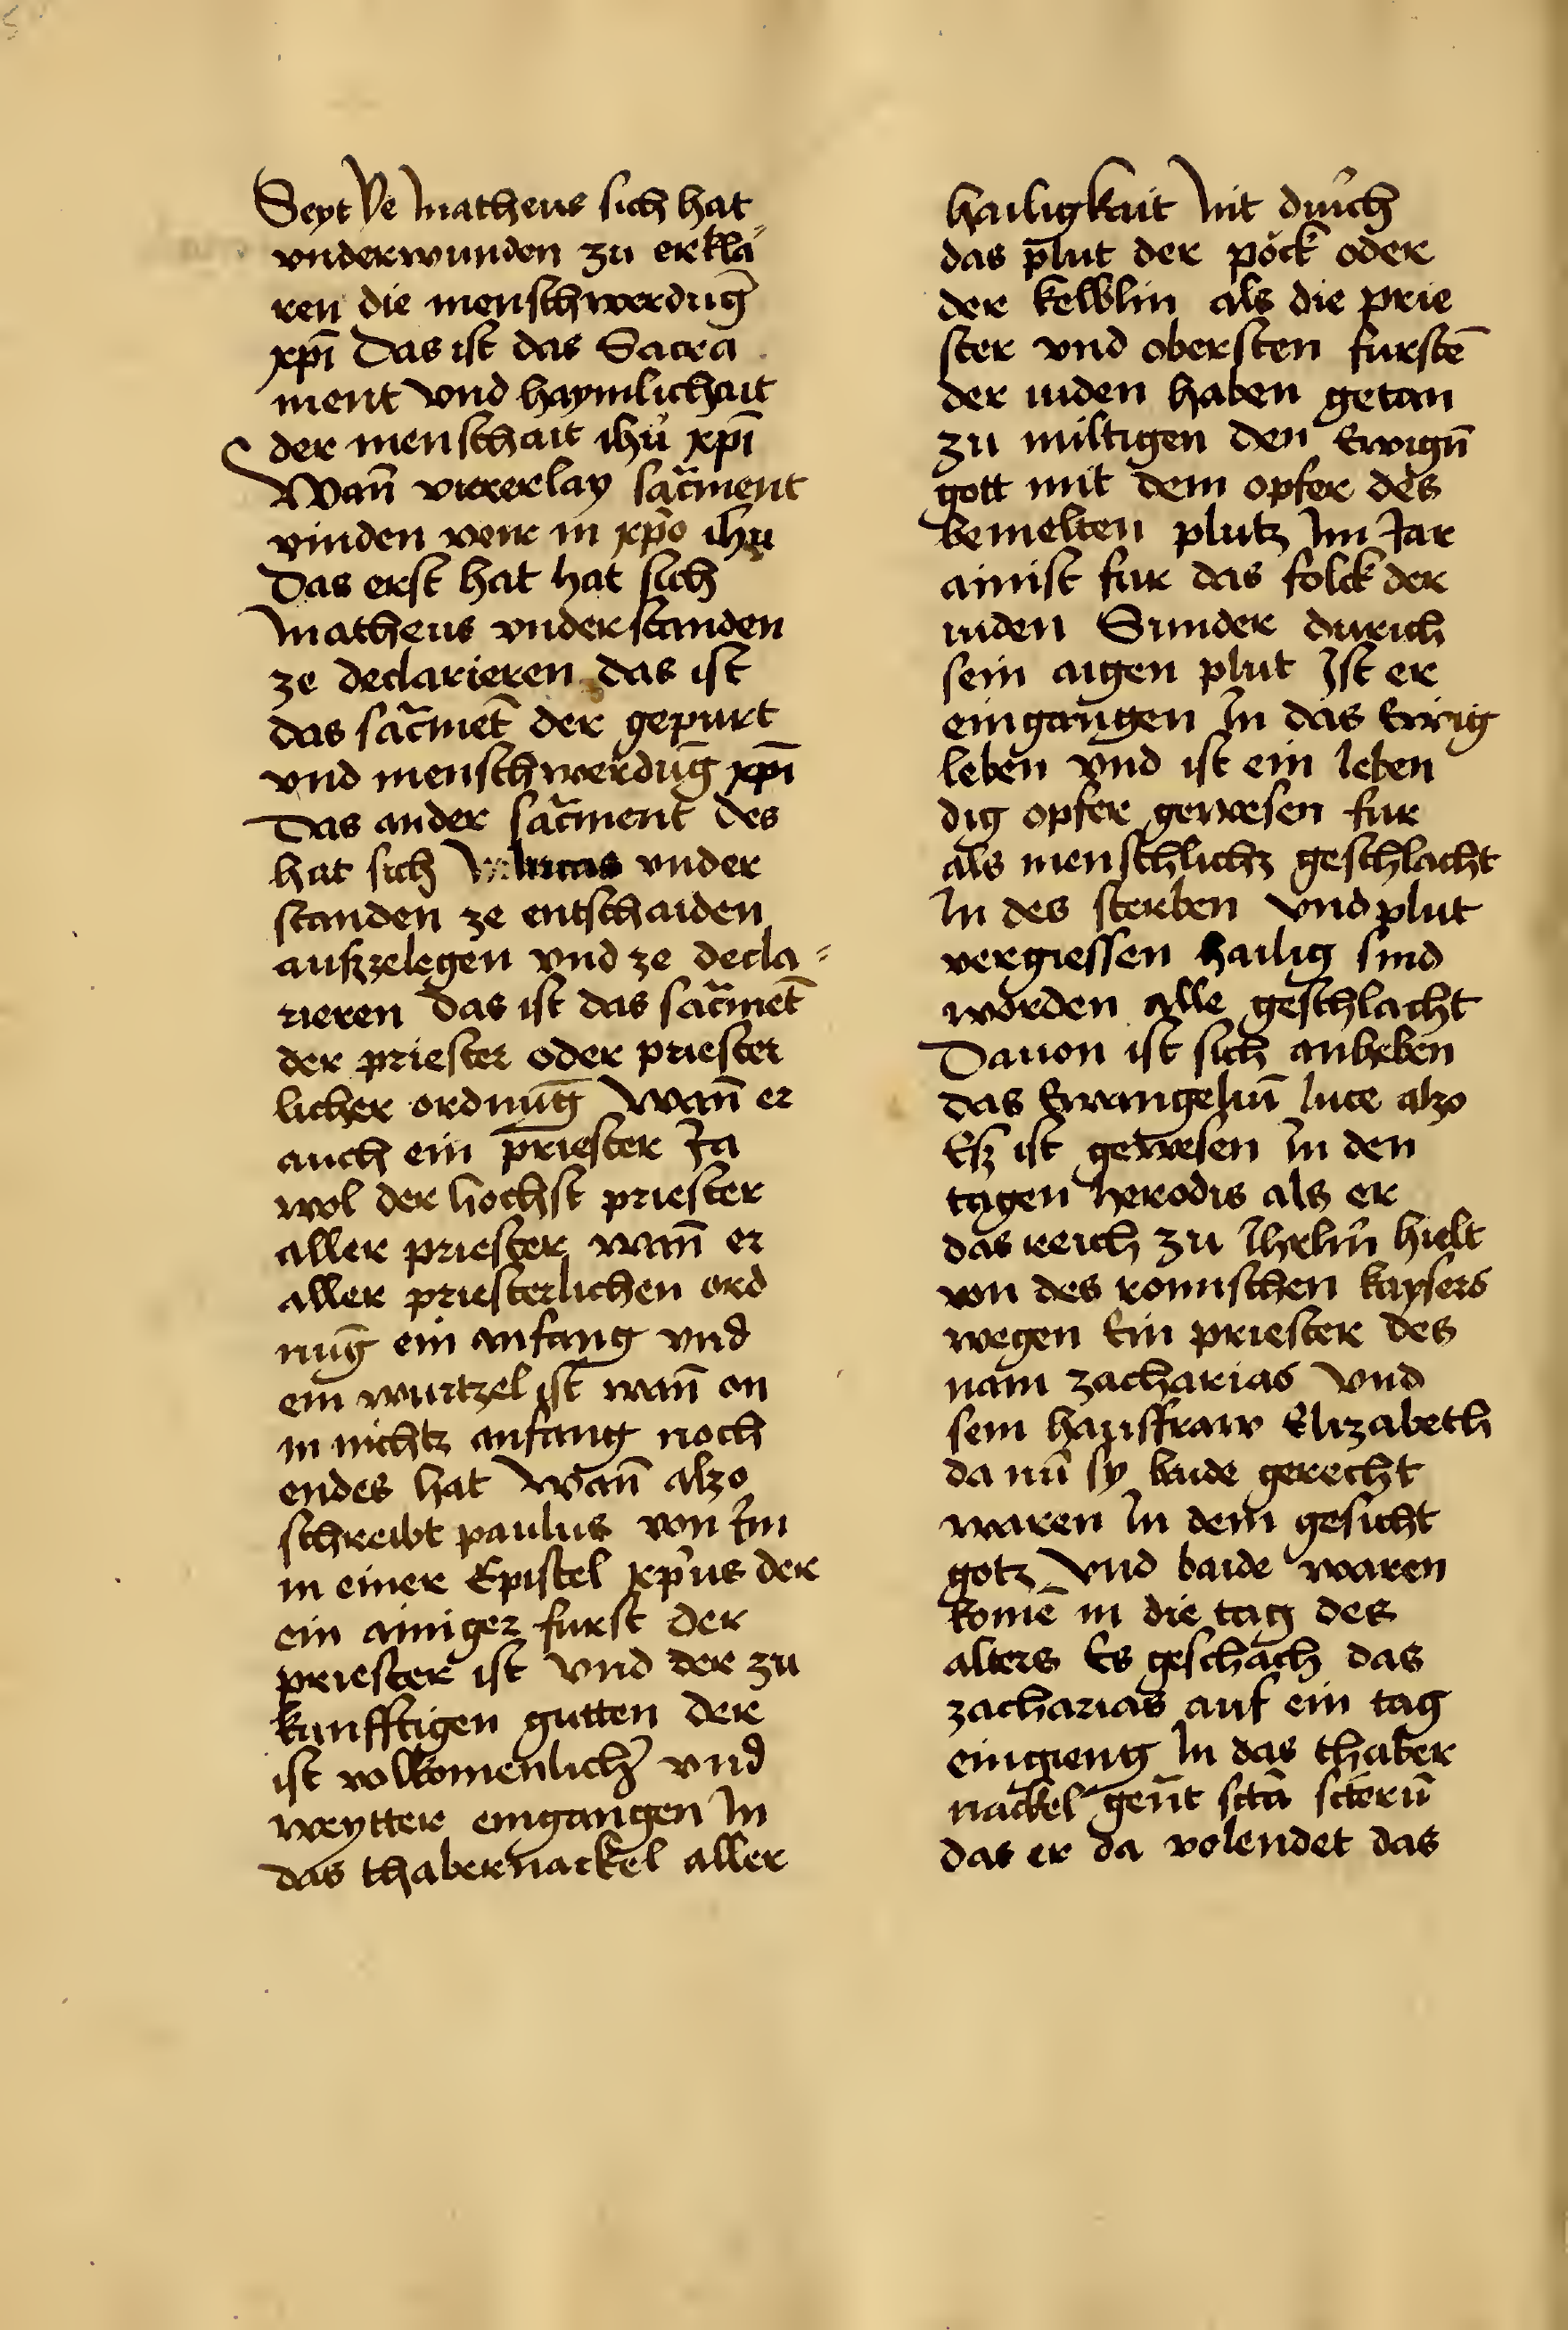 Seyt Ve Matheus sich hat
vnderwunden zu erkla
ren die menschwerdūg
xp̄i Das ist das Sacra
ment vnd haymlichait
der menschait ihū xp̄i
Wan̄ viererlay sac̄ment
vinden wir in xp̄o ihū
Das erst hat hat sich
Matheus vnderstanden
ze declarieren das ist
das sac̄met̄ der gepurt
vnd menschwerdūg xp̄i
Das ander sac̄ment des
hat sich lucas vnder
standen ze entschaiden
auszzelegen vnd ze decla=
rieren das ist das sac̄met̄
der priester oder priester
licher ordnūg Wan̄ er
auch ein priester Ja
wol der hochst priester
aller priester wan̄ er
aller priesterlichen ord
nūg ein anfang vnd
ein wurtzel ist wan̄ on
in nichtz anfang noch
endes hat Wan̄ alzo
schreibt paulus von Im
in einer Epistel xp̄us der
ein ainiger furst der
priester ist vnd der zu
kunfftigen gutten der
ist volkomenlich̄ vnd
weytter eingangen In
das thabernackel aller
hailigkait Nit durch
das plut der pöck oder
der kelblin als die prie
ster vnd obersten furstē
der iuden haben getan
zu miltigen den Ewign̄
gott mit dem opfer des
bemelten plutz Im Jar
ainist fur das folck der
iuden Sunder durich
sein aigen plut Ist er
eingangen In das Ewig
leben vnd ist ein leben
dig opfer gewesen fur
als menschlichz geschlacht
In des sterben vnd plut
vergiessen hailig sind
worden alle geschlacht
Dauon ist sich anheben
das Ewangeliū luce alzo
Esz ist gewesen In den
tagen herodis als er
das reich zu Ihrlm̄ hielt
von des romischen kaysers
wegen Ein priester des
nam zacharias vnd
sein hausfraw Elizabeth
da nū sy baide gerecht
waren In dem gesicht
gotz vnd baide waren
komē in die tag des
alters Es geschach das
zacharias auf ein tag
eingieng In das thaber
nackel gen̄t sctā sctorū
das er da volendet das